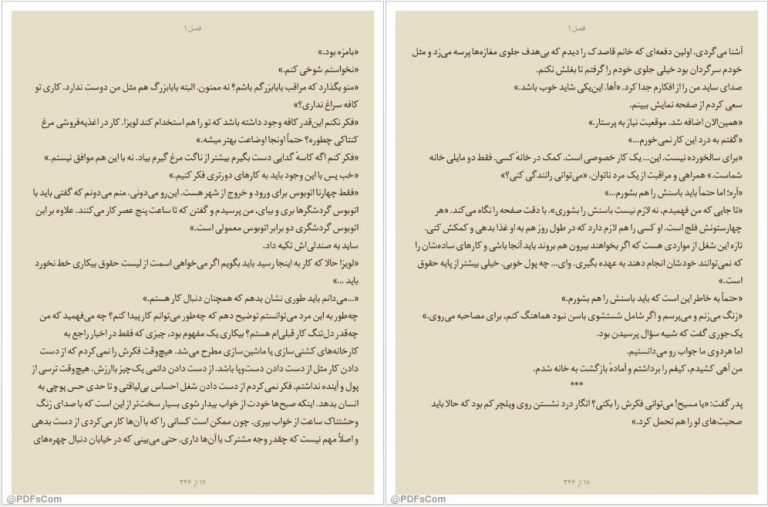 فصل ۱
«بامزه بود.»
«نخواستم شوخی کنم.»
«منو بگذارد که مراقب بابابزرگم باشم؟ نه ممنون. البته بابابزرگ هم مثل من دوست ندارد. کاری تو
کافه سراغ نداری؟»
«فکر نکنم این‌قدر کافه وجود داشته باشد که تو را هم استخدام کند لویزا. کار در اغذیه‌فروشی مرغ
کنتاکی چطوره؟ حتماً اونجا اوضاعت بهتر میشه.»
«فکر کنم اگه کاسهٔ گدایی دست بگیرم بیشتر از ناگت مرغ گیرم بیاد. نه با این هم موافق نیستم.»
«خب پس با این وجود باید به کارهای دورتری فکر کنیم.»
«فقط چهارتا اتوبوس برای ورود و خروج از شهر هست. این‌رو می‌دونی. منم می‌دونم که گفتی باید با
اتوبوس گردشگرها بری و بیای، من پرسیدم و گفتن که تا ساعت پنج عصر کار می‌کنند. علاوه بر این
اتوبوس گردشگری دو برابر اتوبوس معمولی است.»
ساید به صندلی‌اش تکیه داد.
«لویزا حالا که کار به اینجا رسید باید بگویم اگر می‌خواهی اسمت از لیست حقوق بیکاری خط نخورد
باید ...»
«...می‌دانم باید طوری نشان بدهم که همچنان دنبال کار هستم.»
چه‌طور به این مرد می‌توانستم توضیح دهم که چه‌طور می‌توانم کار پیدا کنم؟ چه می‌فهمید که من
چه‌قدر دل‌تنگ کار قبلی‌ام هستم؟ بیکاری یک مفهوم بود، چیزی که فقط در اخبار راجع به
کارخانه‌های کشتی‌سازی یا ماشین‌سازی مطرح می‌شد. هیچ‌وقت فکرش را نمی‌کردم که از دست
دادن کار مثل از دست دادن دست‌وپا باشد. از دست دادن دائمی یک‌چیز باارزش. هیچ‌وقت ترسی از
پول و آینده نداشتم. فکر نمی‌کردم از دست دادن شغل احساس بی‌لیاقتی و تا حدی حس پوچی به
انسان بدهد. اینکه صبح‌ها خودت از خواب بیدار شوی بسیار سخت‌تر از این است که با صدای زنگ
وحشتناک ساعت از خواب بپری. چون ممکن است کسانی را که با آن‌ها کار می‌کردی از دست بدهی
و اصلاً مهم نیست که چقدر وجه مشترک با آن‌ها داری. حتی می‌بینی که در خیابان دنبال چهره‌های
۱۷ از ۳۴۶
@PDFsCom
فصل ۱
آشنا می‌گردی. اولین دفعه‌ای که خانم قاصدک را دیدم که بی‌هدف جلوی مغازه‌ها پرسه می‌زد و مثل
خودم سرگردان بود خیلی جلوی خودم را گرفتم تا بغلش نکنم.
صدای ساید من را از افکارم جدا کرد. «آها. این‌یکی شاید خوب باشد.»
سعی کردم از صفحه نمایش ببینم.
«همین‌الان اضافه شد. موقعیت نیاز به پرستار.»
«گفتم به درد این کار نمی‌خورم...»
«برای سالخورده نیست. این... یک کار خصوصی است. کمک در خانهٔ کسی. فقط دو مایلی خانه
شماست.» همراهی و مراقبت از یک مرد ناتوان. «می‌توانی رانندگی کنی؟»
«آره؛ اما حتماً باید باسنش را هم بشورم...»
«تا جایی که من فهمیدم، نه لازم نیست باسنش را بشوری». با دقت صفحه را نگاه می‌کند. «هر
چهارستونش فلج است. او کسی را هم لازم دارد که در طول روز هم به او غذا بدهی و کمکش کنی.
تازه این شغل از مواردی هست که اگر بخواهند بیرون هم بروند باید آنجا باشی و کارهای ساده‌شان را
که نمی‌توانند خودشان انجام دهند به عهده بگیری. وای... چه پول خوبی. خیلی بیشتر از پایه حقوق
است.»
«حتماً به خاطر این است که باید باسنش را هم بشورم.»
«زنگ می‌زنم و می‌پرسم و اگر شامل شستشوی باسن نبود هماهنگ کنم، برای مصاحبه می‌روی.»
یک‌جوری گفت که شبیه سؤال پرسیدن بود.
اما هردوی ما جواب رو می‌دانستیم.
من آهی کشیدم، کیفم را برداشتم و آمادهٔ بازگشت به خانه شدم.
***
پدر گفت: «یا مسیح! می‌توانی فکرش را بکنی؟ انگار درد نشستن روی ویلچر کم بود که حالا باید
صحبت‌های لو را هم تحمل کرد.»
۱۸ از ۳۴۶
@PDFsCom